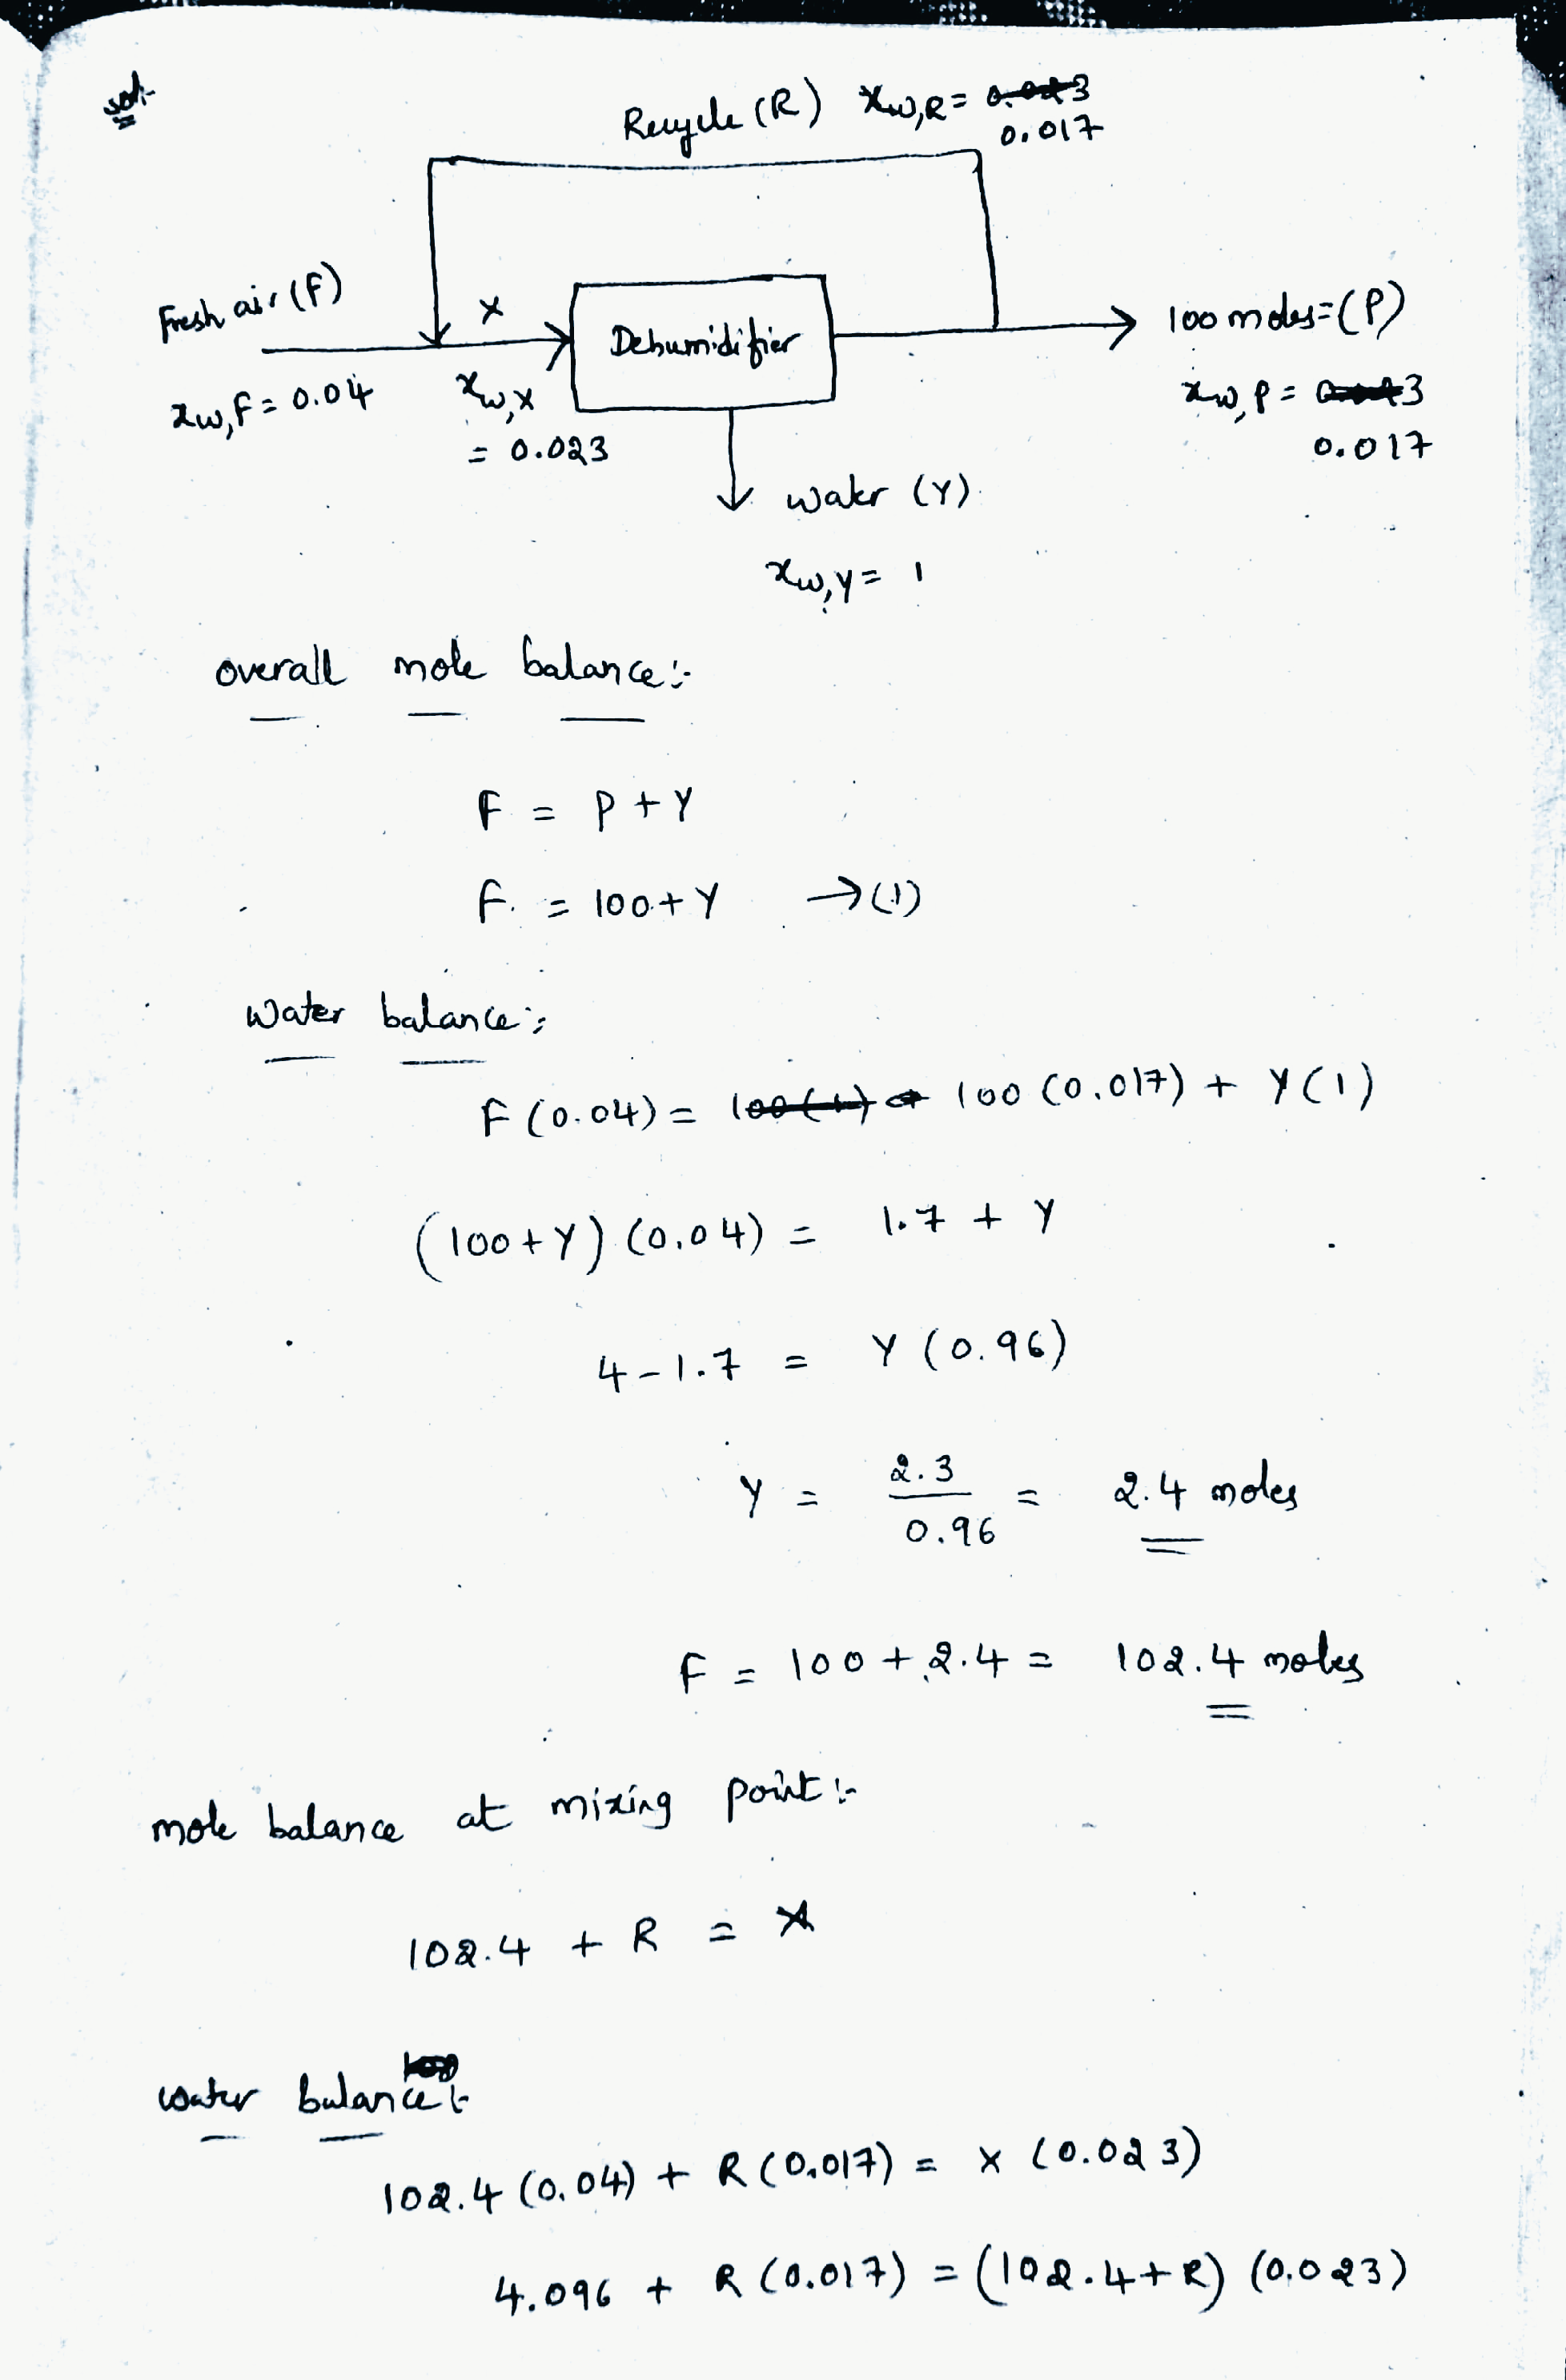 sol:-
Recycle (R) xw,R = 0.023
0.017
Fresh air (F)
X
Dehumidifier
100 moles = (P)
xw,F = 0.04
xw,X
= 0.023
xw,P = 0.023
0.017
water (Y)
xw,Y = 1
overall mole balance:-
F = P + Y
F = 100 + Y → (1)
Water balance:-
F (0.04) = 100 (1) + 100 (0.017) + Y (1)
(100 + Y) (0.04) = 1.7 + Y
4 - 1.7 = Y (0.96)
Y = 2.3 / 0.96 = 2.4 moles
F = 100 + 2.4 = 102.4 moles
mole balance at mixing point:-
102.4 + R = X
water balance:-
102.4 (0.04) + R (0.017) = X (0.023)
4.096 + R (0.017) = (102.4 + R) (0.023)